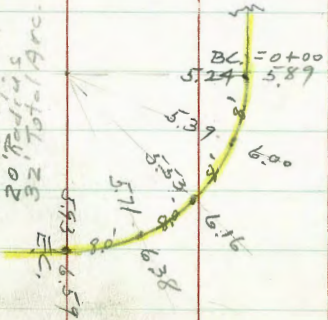 20' Radius
32' Total Arc.
BC. = 0+00
5.24 5.89
8'
5.39 6.00
8'
5.55 6.16
8.0'
5.71 6.38
8.0'
5.93 6.59
E.C.